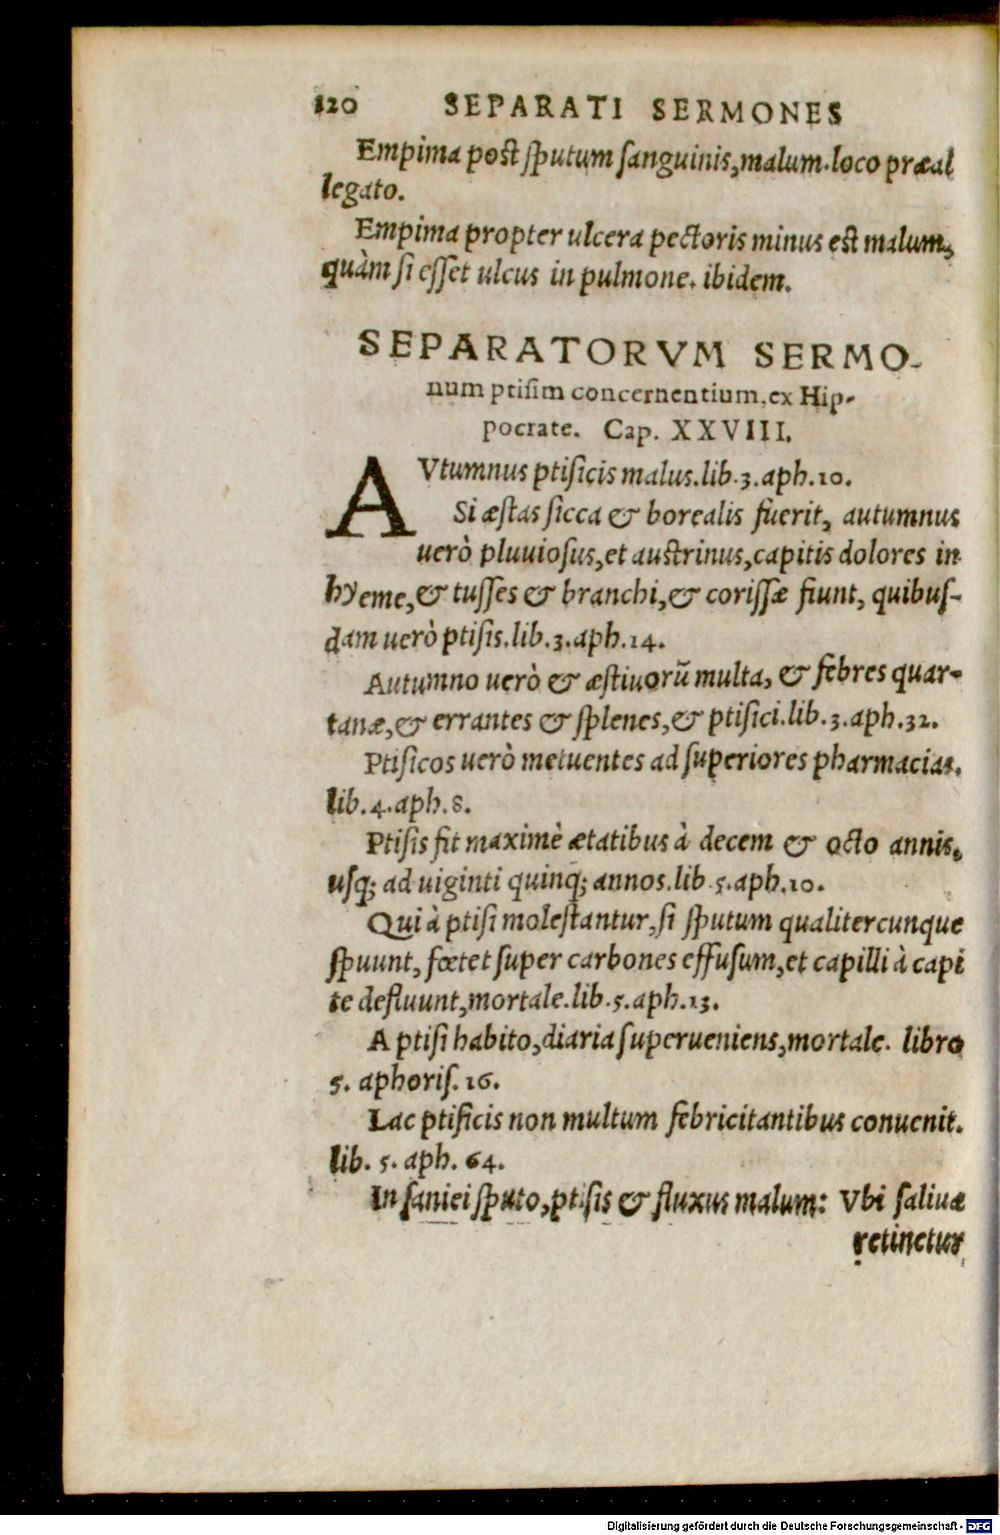 120 SEPARATI SERMONES
Empima post sputum sanguinis,malum.loco præal
legato.
Empima propter ulcera pectoris minus est malum,
quàm si esset ulcus in pulmone. ibidem.
SEPARATORVM SERMO-
num ptisim concernentium,ex Hip-
pocrate. Cap. XXVIII.
AVtumnus ptisicis malus.lib.3.aph.10.
Si æstas sicca & borealis fuerit, autumnus
uerò pluuiosus,et austrinus,capitis dolores in
hyeme,& tusses & branchi,& corissæ fiunt, quibus-
dam uerò ptisis.lib.3.aph.14.
Autumno uerò & æstiuorū multa, & febres quar-
tanæ,& errantes & splenes,& ptisici.lib.3.aph.32.
Ptisicos uerò metuentes ad superiores pharmacias.
lib.4.aph.8.
Ptisis fit maximè ætatibus à decem & octo annis,
usq; ad uiginti quinq; annos.lib.5.aph.10.
Qui à ptisi molestantur,si sputum qualitercunque
spuunt, fœtet super carbones effusum,et capilli à capi
te defluunt,mortale.lib.5.aph.13.
A ptisi habito,diaria superueniens,mortale. libro
5. aphoris.16.
Lac ptisicis non multum febricitantibus conuenit.
lib. 5. aph. 64.
In saniei sputo,ptisis & fluxus malum: Vbi saliuæ
retinetur
Digitalisierung gefördert durch die Deutsche Forschungsgemeinschaft - DFG